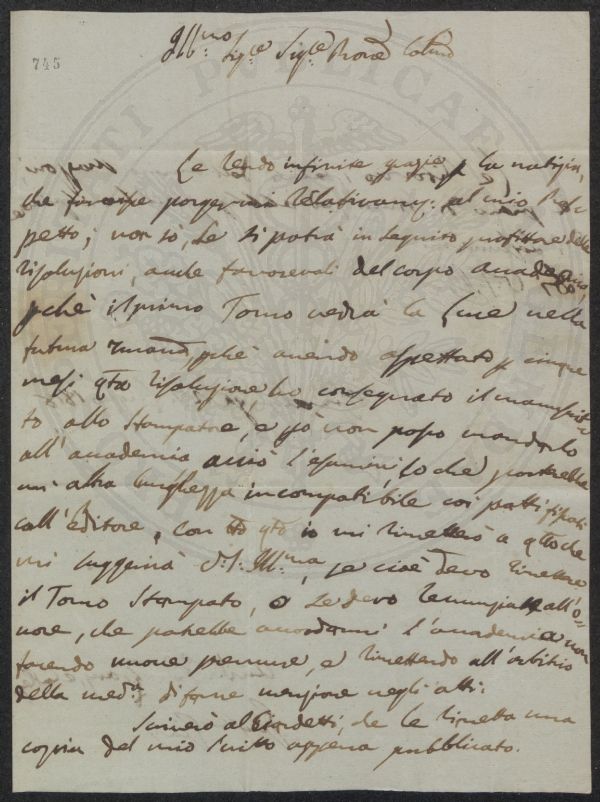 745
Ill.mo Sig.re Sig.re Prone
Le rendo infinite grazie p la notizia,
che porgermi relativam: al mio Pros
petto; non sò, se si potrà in seguito profittare delle
risoluzioni, anche favorevoli del corpo
pchè il primo Tomo vedrà la luce nella
futura pchè avendo aspettato p cinque
mesi qta risoluzione, ho consegnato il manoscrit
to allo Stampatore, e più non posso mandarlo
all'accademia acciò l'esamini, lo che porterebbe
un'altra lunghezza incompatibile coi patti fissati
coll'Editore. Con tto qto io mi rimetterò a qtto che
mi suggerirà V.S. Ill.ma, se cioè devo rimettere
il Tomo Stampato, o se devo renunziare all'o-
nore, che potrebbe accordarmi l'accademia non
facendo nuove premure, e rimettendo all'arbitrio
della med.a di farne menzione negli atti.
Scriverò al che le rimetta una
copia del mio Scritto appena pubblicato.